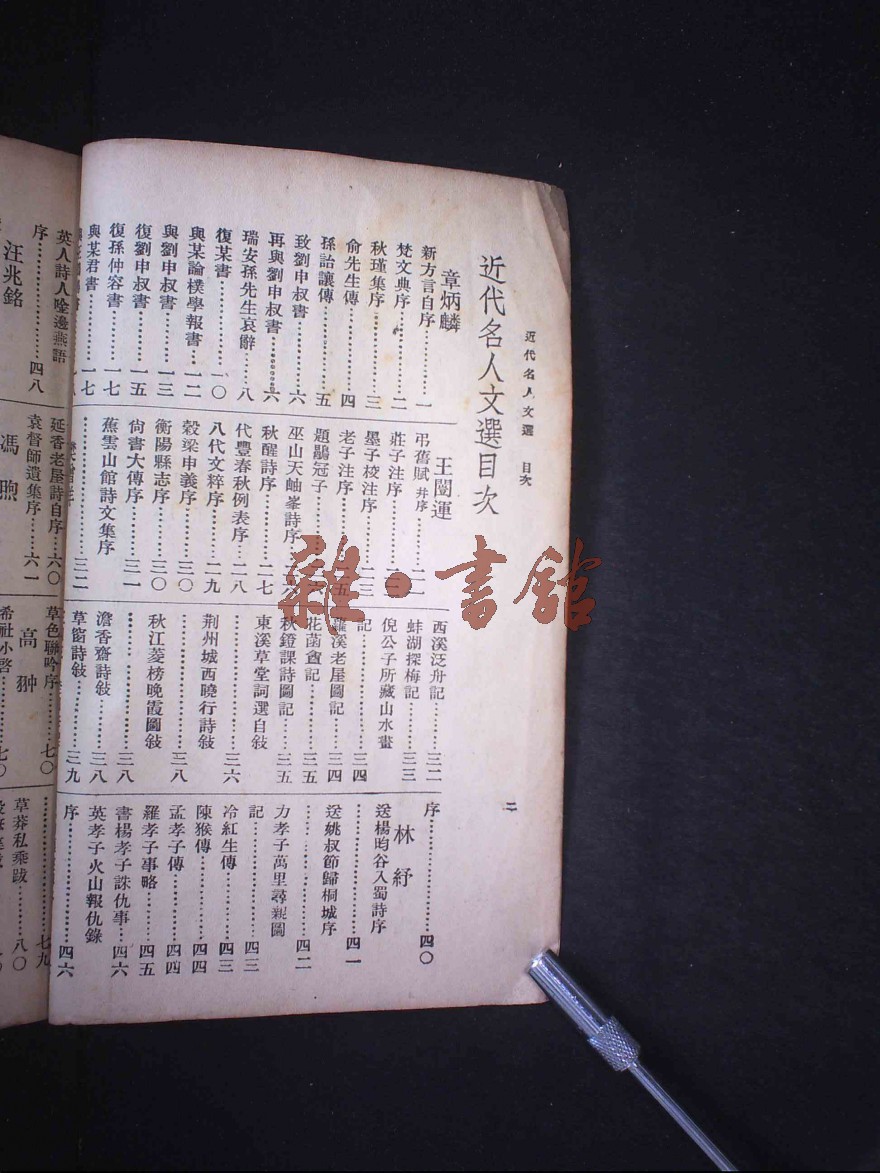 近代名人文選 目次
二
近代名人文選目次
章炳麟
新方言自序…………一
梵文典序…………二
秋瑾集序…………三
俞先生傳…………四
孫詒讓傳…………五
致劉申叔書…………六
再與劉申叔書…………六
瑞安孫先生哀辭…………八
復某書…………一〇
與某論樸學報書…………一二
與劉申叔書…………一三
復劉申叔書…………一五
復孫仲容書…………一六
與某君書…………一七
王闓運
弔舊賦 幷序…………二一
莊子注序
墨子校注序…………二三
老子注序…………二五
題鶡冠子
巫山天岫峯詩序
秋醒詩序…………二七
代豐春秋例表序…………二八
八代文粹序…………二九
穀梁申義序…………三〇
衡陽縣志序…………三〇
尙書大傳序…………三一
蕉雲山館詩文集序
…………三二
西溪泛舟記…………三二
蚌湖探梅記…………三三
倪公子所藏山水畫
記…………三四
溪老屋圖記…………三四
花菡盦記…………三五
秋鐙課詩圖記…………三五
東溪草堂詞選自敍
…………三六
荆州城西曉行詩敍
…………三八
秋江菱榜晚霞圖敍
…………三八
澹香齋詩敍…………三八
草窗詩敍…………三九
序…………四〇
林紓
送楊昀谷入蜀詩序
…………四一
送姚叔節歸桐城序
…………四二
力孝子萬里尋親圖
記…………四三
冷紅生傳…………四三
陳猴傳…………四四
孟孝子傳…………四四
羅孝子事略…………四五
書楊孝子誅仇事…………四六
英孝子火山報仇錄
序…………四六
英人詩人唫邊燕語
序…………四八
汪兆銘
延香老屋詩自序…………六〇
袁督師遺集序…………六一
馮煦
草色聯吟序…………七〇
高翀
希社小啓…………七〇
…………七九
草莽私乘跋…………八〇
雜·書館